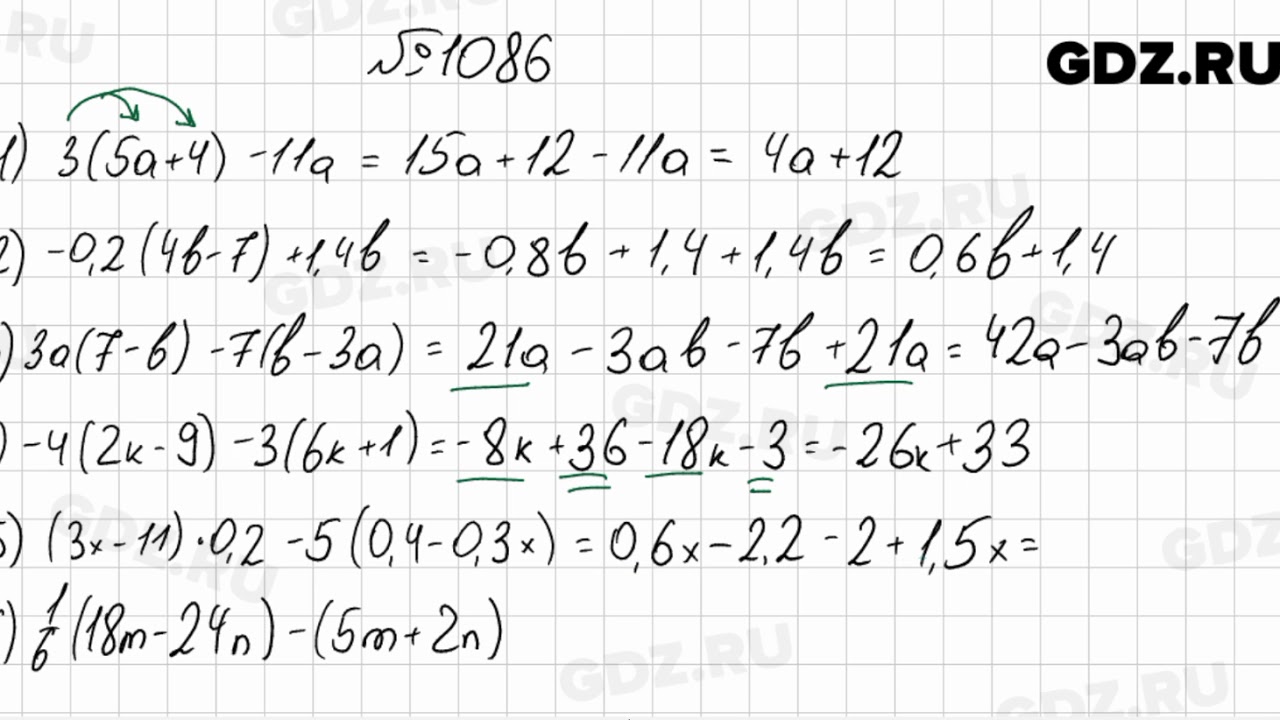 №1086
GDZ.RU
1) 3(5a+4) -11a = 15a+12-11a = 4a+12
2) -0,2(4b-7)+1,4b = -0,8b+1,4+1,4b = 0,6b+1,4
) 3a(7-b) -7(b-3a) = 21a - 3ab - 7b +21a = 42a-3ab-7b
) -4(2k-9) -3(6k+1) = -8k+36-18k-3 = -26k+33
5) (3x-11)·0,2 -5(0,4-0,3x) = 0,6x-2,2-2+1,5x=
) 1/6(18m-24n)-(5m+2n)